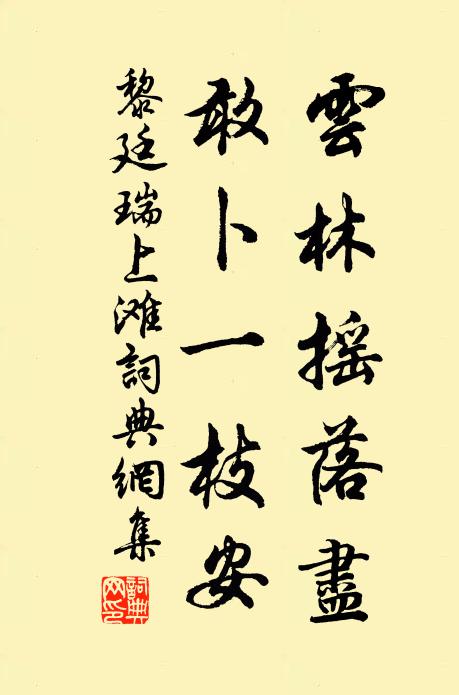 雲林摇落盡
敢卜一枝安
黎廷瑞上滩詞典網集
詞典網印